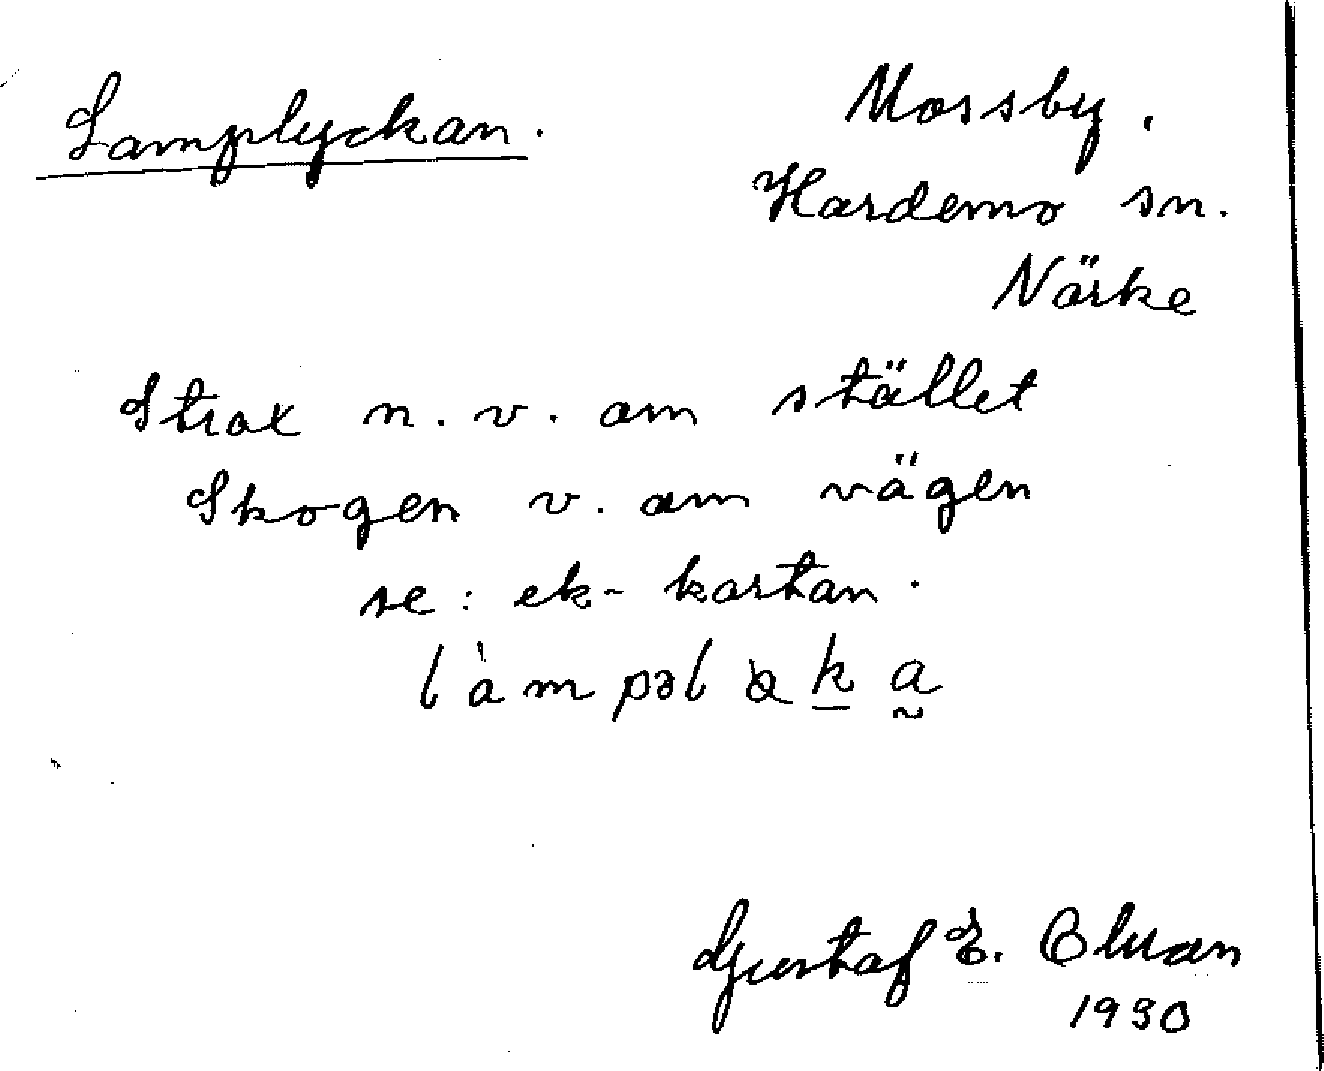 Lamplyckan.
Mossby.
Hardemo sn.
Närke
Strax n. v. om stället
Skogen v. om vägen
se: ek-kartan.
Gustaf E.
1930